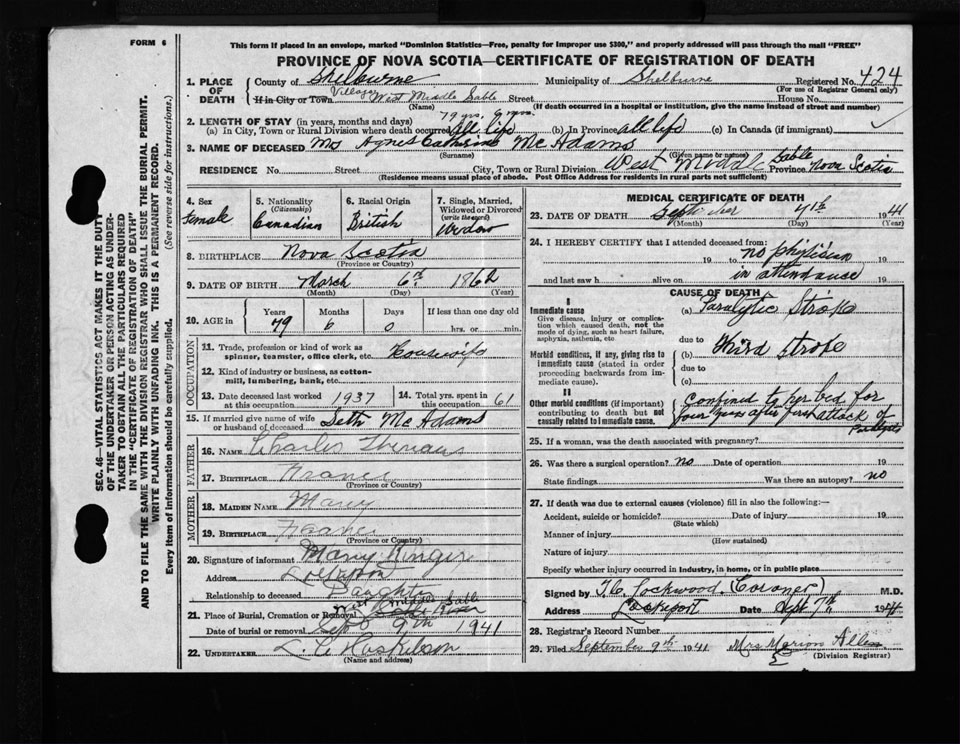 FORM 6
This form if placed in an envelope, marked "Dominion Statistics—Free, penalty for improper use $300," and properly addressed will pass through the mail "FREE"
PROVINCE OF NOVA SCOTIA—CERTIFICATE OF REGISTRATION OF DEATH
1. PLACE OF DEATH
County of Shelburne Municipality of Shelburne Registered No. 424
(For use of Registrar General only)
If in City or Town Village West Middle Sable Street House No.
(Name) (If death occurred in a hospital or institution, give the name instead of street and number)
2. LENGTH OF STAY (in years, months and days) 79 yrs, 6 mos.
(a) In City, Town or Rural Division where death occurred all life (b) In Province all life (c) In Canada (if immigrant)
3. NAME OF DECEASED Mrs Agnes Catherine McAdams
(Surname) (Given name or names)
RESIDENCE No. Street City, Town or Rural Division West Middle Sable Province Nova Scotia
(Residence means usual place of abode. Post Office Address for residents in rural parts not sufficient)
4. Sex Female
5. Nationality (Citizenship) Canadian
6. Racial Origin British
7. Single, Married, Widowed or Divorced (write the word) Widow
8. BIRTHPLACE Nova Scotia
(Province or Country)
9. DATE OF BIRTH March 6th 1862
(Month) (Day) (Year)
10. AGE in Years Months Days If less than one day old
79 6 0 hrs. or min.
OCCUPATION
11. Trade, profession or kind of work as spinner, teamster, office clerk, etc. Housewife
12. Kind of industry or business, as cotton-mill, lumbering, bank, etc.
13. Date deceased last worked at this occupation 1937
14. Total yrs. spent in this occupation 61
15. If married give name of wife or husband of deceased Seth McAdams
FATHER
16. NAME Charles
17. BIRTHPLACE France
(Province or Country)
MOTHER
18. MAIDEN NAME Mary
19. BIRTHPLACE France
(Province or Country)
20. Signature of informant Mary Ringer
Address
Relationship to deceased Daughter
21. Place of Burial, Cremation or Removal West Middle Sable
Date of burial or removal Sept 9th 1941
22. UNDERTAKER L. C.
(Name and address)
MEDICAL CERTIFICATE OF DEATH
23. DATE OF DEATH September 7th 1941
(Month) (Day) (Year)
24. I HEREBY CERTIFY that I attended deceased from:
19 to no physician 19
and last saw h alive on in attendance 19
CAUSE OF DEATH
I
Immediate cause
Give disease, injury or complication which caused death, not the mode of dying, such as heart failure, asphyxia, asthenia, etc
(a) Paralytic Stroke
due to
Morbid conditions, if any, giving rise to immediate cause (stated in order proceeding backwards from immediate cause).
(b) third stroke
due to
(c)
II
Other morbid conditions (if important) contributing to death but not causally related to immediate cause.
Confined to her bed for four years after first attack of Paralysis
25. If a woman, was the death associated with pregnancy?
26. Was there a surgical operation? no Date of operation 19
State findings Was there an autopsy? no
27. If death was due to external causes (violence) fill in also the following:—
Accident, suicide or homicide? Date of injury 19
(State which)
Manner of injury
(How sustained)
Nature of injury
Specify whether injury occurred in industry, in home, or in public place
Signed by T.C. Lockwood (Coroner) M.D.
Address Lockeport Date Sept 7th 1941
28. Registrar's Record Number
29. Filed September 9th 1941 Mrs Marion Allen
(Division Registrar)
SEC. 46—VITAL STATISTICS ACT MAKES IT THE DUTY OF THE UNDERTAKER (OR PERSON ACTING AS UNDERTAKER) TO OBTAIN ALL THE PARTICULARS REQUIRED IN THE "CERTIFICATE OF REGISTRATION OF DEATH" AND TO FILE THE SAME WITH THE DIVISION REGISTRAR WHO SHALL ISSUE THE BURIAL PERMIT.
WRITE PLAINLY WITH UNFADING INK. THIS IS A PERMANENT RECORD.
Every item of information should be carefully supplied. (See reverse side for instructions.)